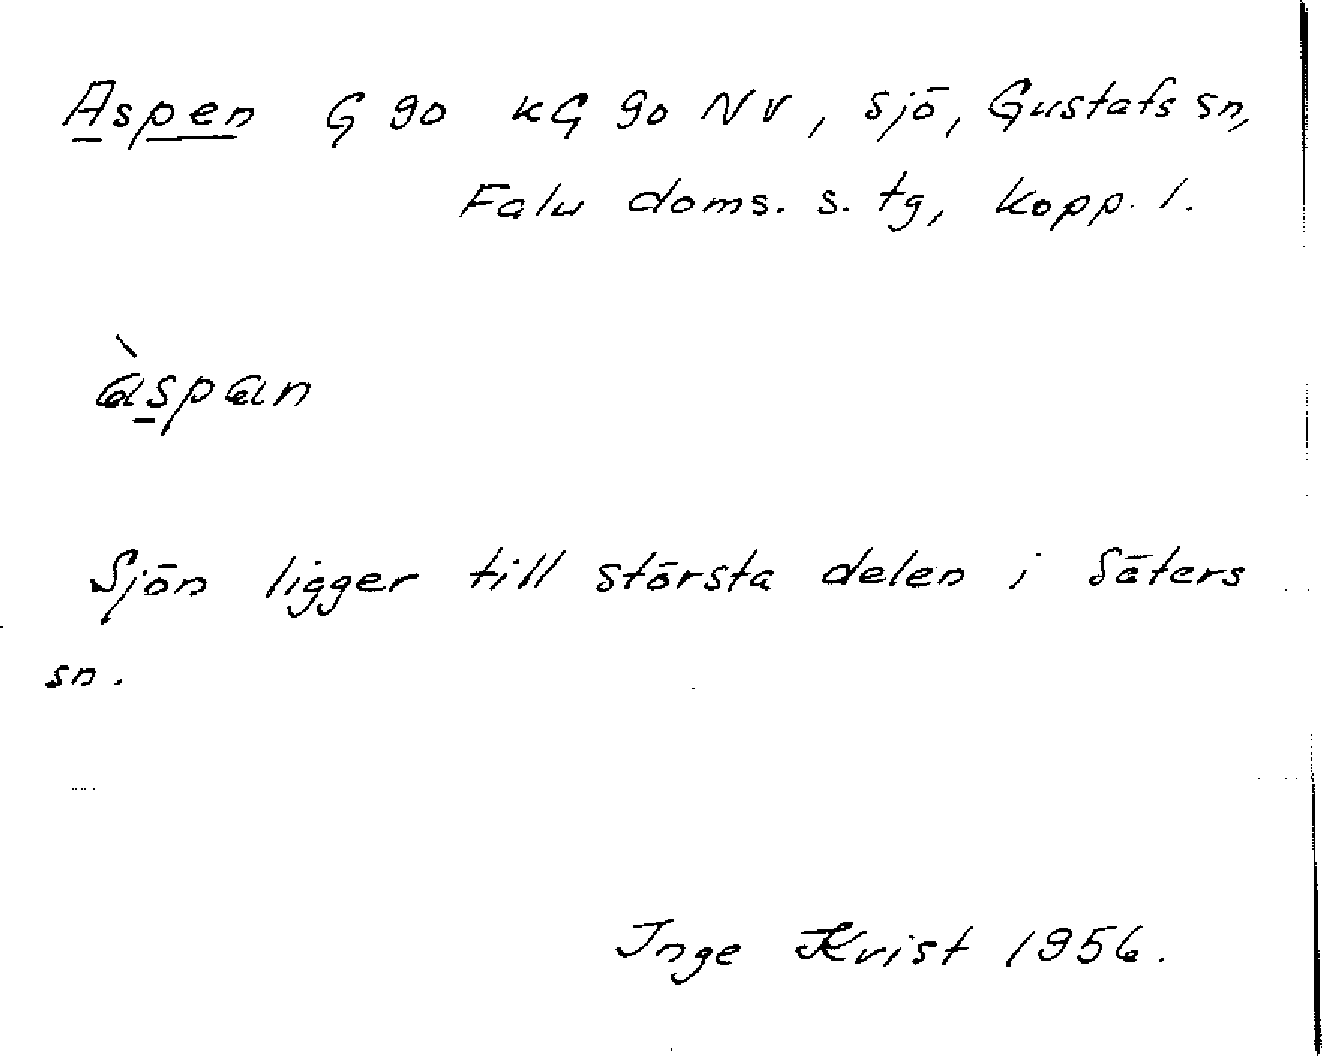 Aspen G 90 KG 90 NV, sjö, Gustafs sn,
Falu doms. s. tg, Kopp. l.
àspan
Sjön ligger till största delen i Säters
sn.
Inge Kvist 1956.